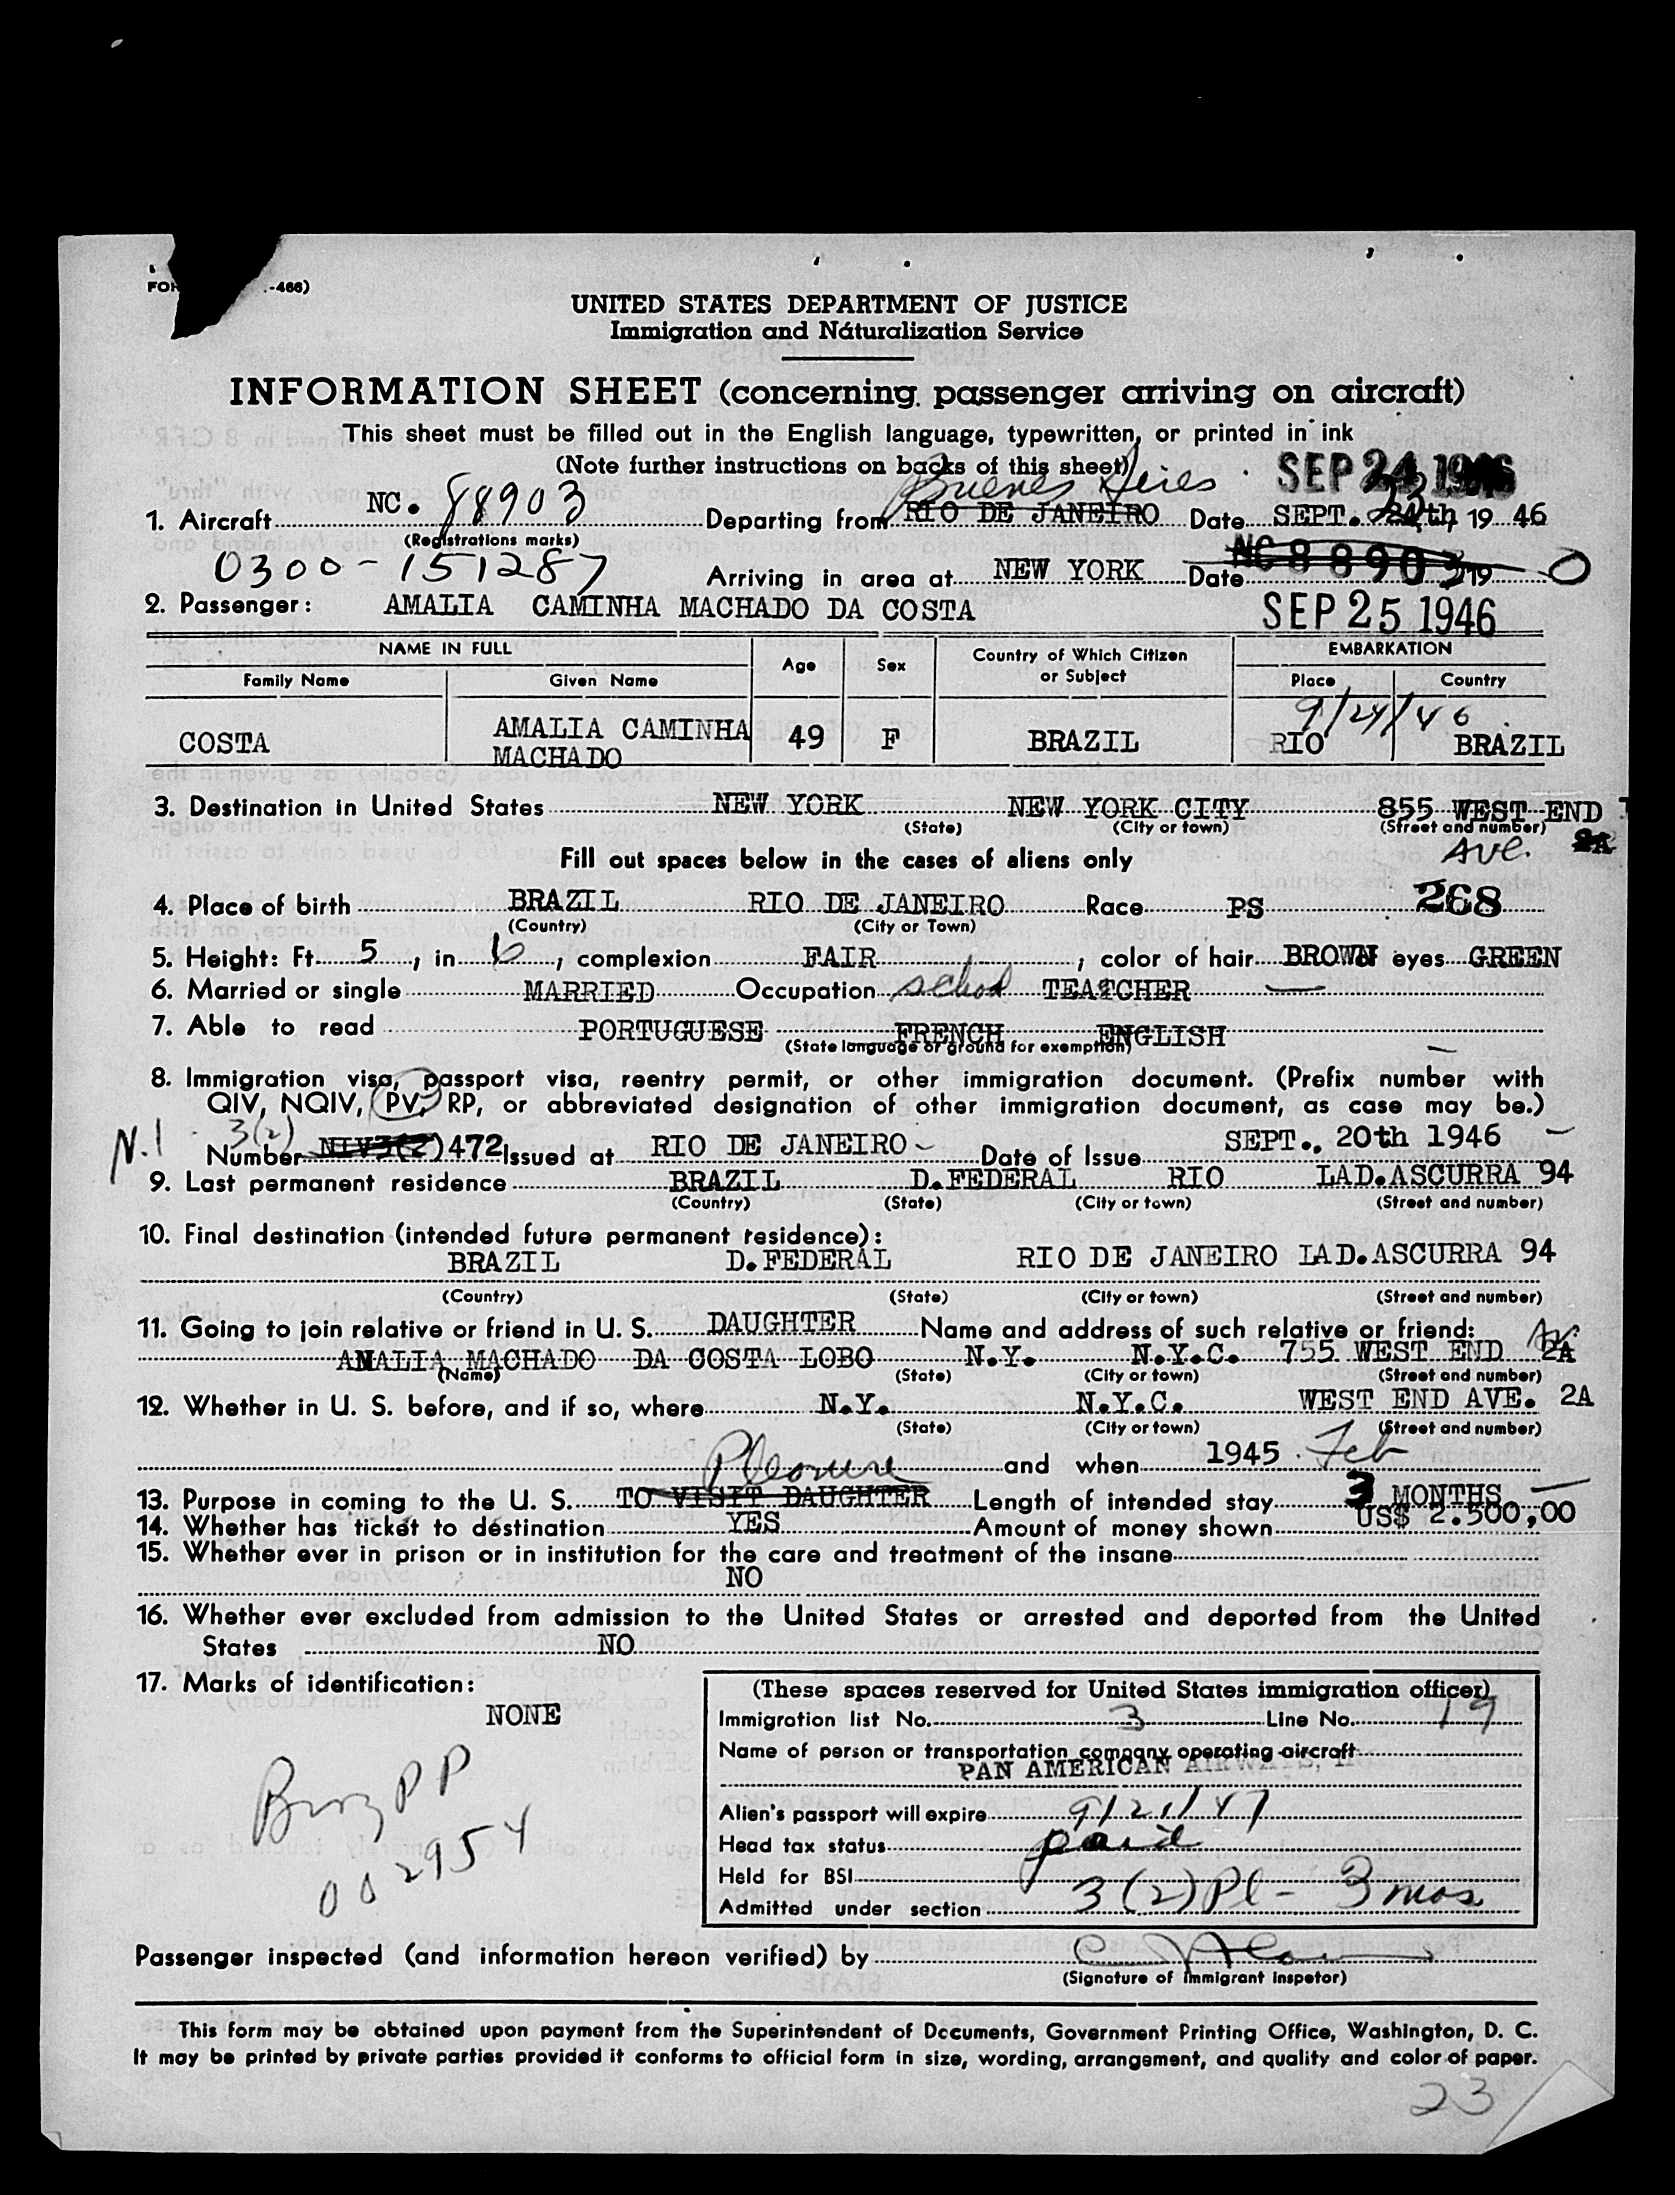 FO -466)
UNITED STATES DEPARTMENT OF JUSTICE
Immigration and Naturalization Service
INFORMATION SHEET (concerning passenger arriving on aircraft)
This sheet must be filled out in the English language, typewritten, or printed in ink
(Note further instructions on backs of this sheet) SEP 24 1946
Buenes Aires
1. Aircraft NC. 88903 Departing from RIO DE JANEIRO Date SEPT. 24th 19 46
(Registrations marks)
0300-151287 Arriving in area at NEW YORK Date NC 88903 19 0
2. Passenger: AMALIA CAMINHA MACHADO DA COSTA SEP 25 1946
NAME IN FULL Age Sex Country of Which Citizen or Subject EMBARKATION
Family Name Given Name Place Country
9/24/46
COSTA AMALIA CAMINHA MACHADO 49 F BRAZIL RIO BRAZIL
3. Destination in United States NEW YORK NEW YORK CITY 855 WEST END
(State) (City or town) (Street and number)
Fill out spaces below in the cases of aliens only Ave. 2A
4. Place of birth BRAZIL RIO DE JANEIRO Race PS 268
(Country) (City or Town)
5. Height: Ft. 5, in. 6, complexion FAIR; color of hair BROWN eyes GREEN
6. Married or single MARRIED Occupation school TEATCHER
7. Able to read PORTUGUESE FRENCH ENGLISH
(State language or ground for exemption)
8. Immigration visa, passport visa, reentry permit, or other immigration document. (Prefix number with
QIV, NQIV, PV, RP, or abbreviated designation of other immigration document, as case may be.)
N.I 3(2)
Number NIV3(2) 472 Issued at RIO DE JANEIRO Date of Issue SEPT., 20th 1946
9. Last permanent residence BRAZIL D.FEDERAL RIO LAD.ASCURRA 94
(Country) (State) (City or town) (Street and number)
10. Final destination (intended future permanent residence):
BRAZIL D.FEDERAL RIO DE JANEIRO LAD.ASCURRA 94
(Country) (State) (City or town) (Street and number)
11. Going to join relative or friend in U. S. DAUGHTER Name and address of such relative or friend:
AMALIA MACHADO DA COSTA LOBO N.Y. N.Y.C. 755 WEST END Av. 2A
(Name) (State) (City or town) (Street and number)
12. Whether in U. S. before, and if so, where N.Y. N.Y.C. WEST END AVE. 2A
(State) (City or town) (Street and number)
and when 1945 Feb
Pleasure
13. Purpose in coming to the U. S. TO VISIT DAUGHTER Length of intended stay 3 MONTHS
14. Whether has ticket to destination YES Amount of money shown US$ 2.500,00
15. Whether ever in prison or in institution for the care and treatment of the insane
NO
16. Whether ever excluded from admission to the United States or arrested and deported from the United
States NO
17. Marks of identification:
NONE
Braz PP
002954
(These spaces reserved for United States immigration officer)
Immigration list No. 3 Line No. 19
Name of person or transportation company operating aircraft
PAN AMERICAN AIRWAYS, IN
Alien's passport will expire 9/21/47
Head tax status paid
Held for BSI
Admitted under section 3(2) Pl - 3 mos
Passenger inspected (and information hereon verified) by
(Signature of Immigrant Inspetor)
This form may be obtained upon payment from the Superintendent of Documents, Government Printing Office, Washington, D. C.
It may be printed by private parties provided it conforms to official form in size, wording, arrangement, and quality and color of paper.
23